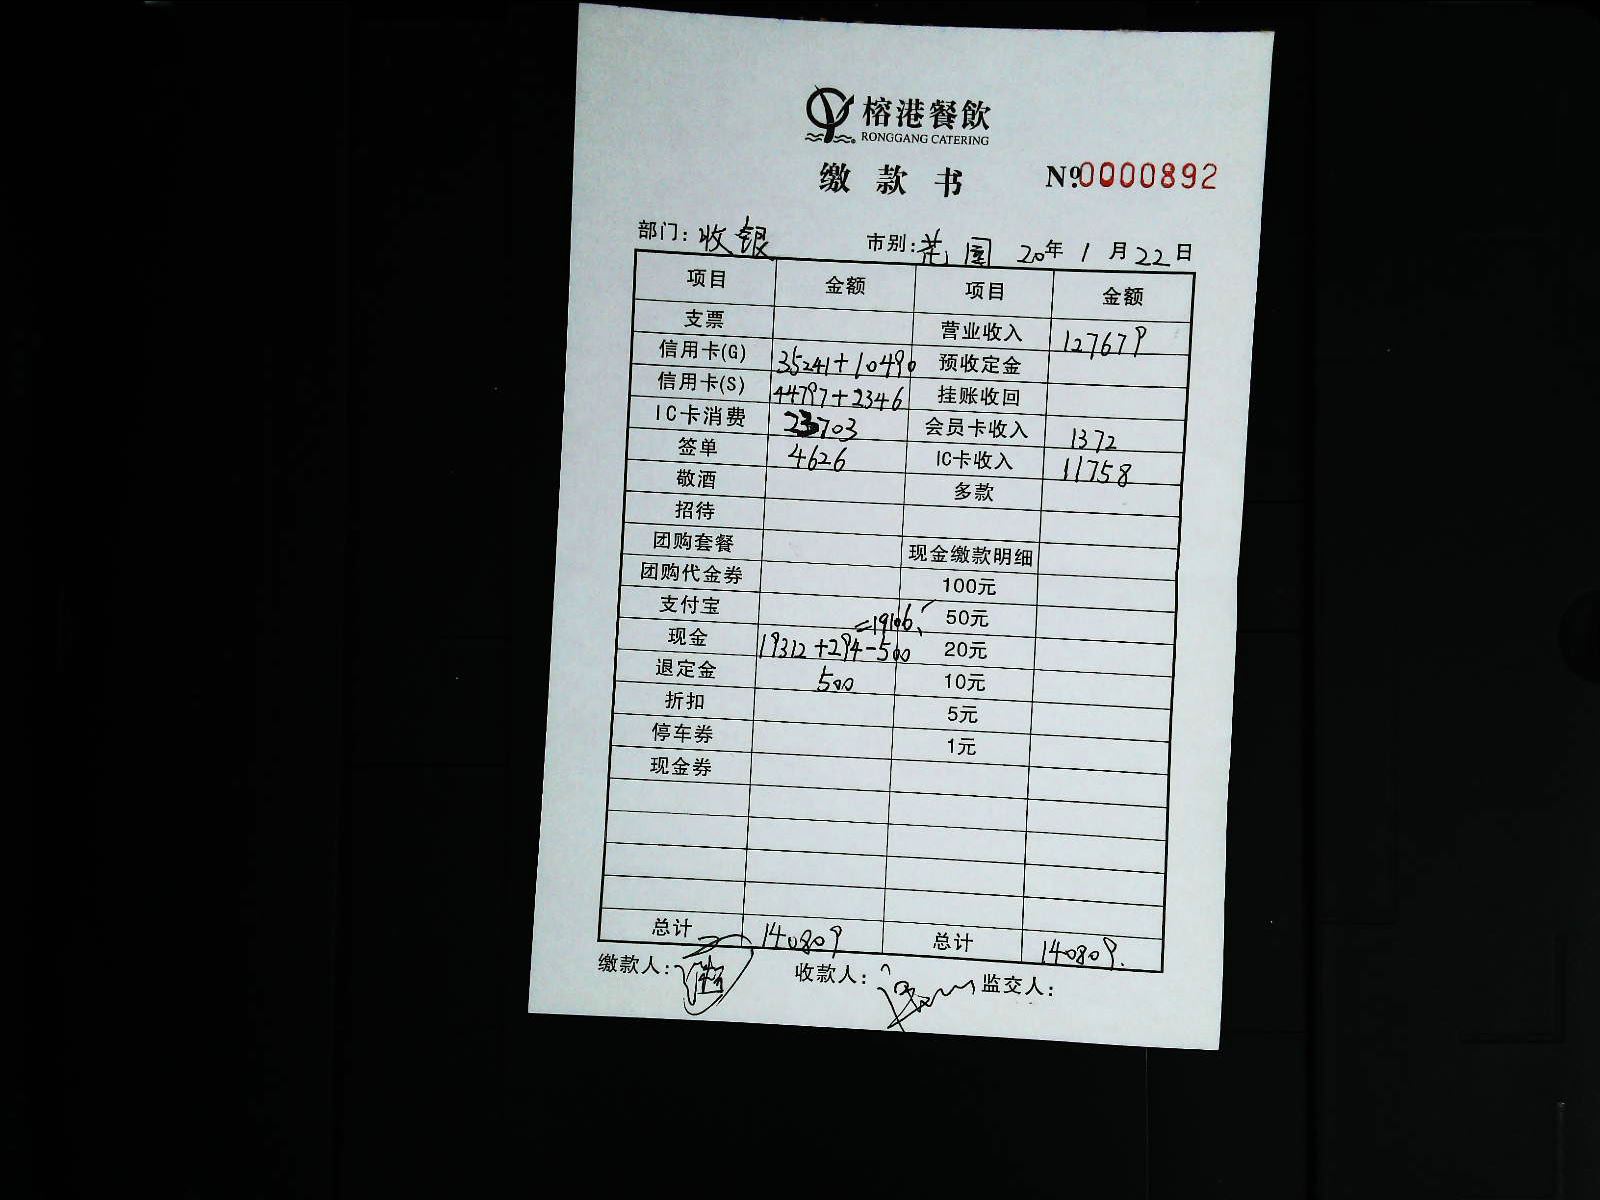 榕港餐飲
RONGGANG CATERING
缴款书 №0000892
部门: 收银 市别: 花园 20年1月22日
项目 金额 项目 金额
支票 营业收入 127679
信用卡(G) 35241+10490 预收定金
信用卡(S) 44797+2346 挂账收回
IC卡消费 23703 会员卡收入 1372
签单 4626 IC卡收入 11758
敬酒 多款
招待
团购套餐 现金缴款明细
团购代金券 100元
支付宝 =19106 50元
现金 19312+294-500 20元
退定金 500 10元
折扣 5元
停车券 1元
现金券
总计 140809 总计 140809.
缴款人: 收款人: 监交人: